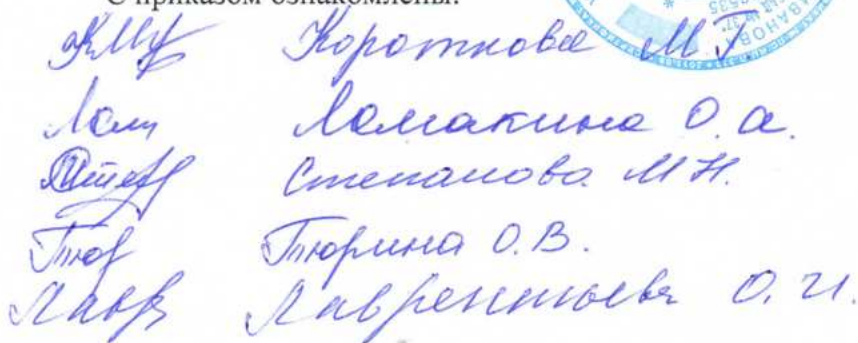 С приказом ознакомлены:
Короткова М.Г.
Лом Ломакина О.А.
Степанова М.Н.
Тюр Тюрина О.В.
Лавр Лаврентьева О.И.
ИВАНОВА